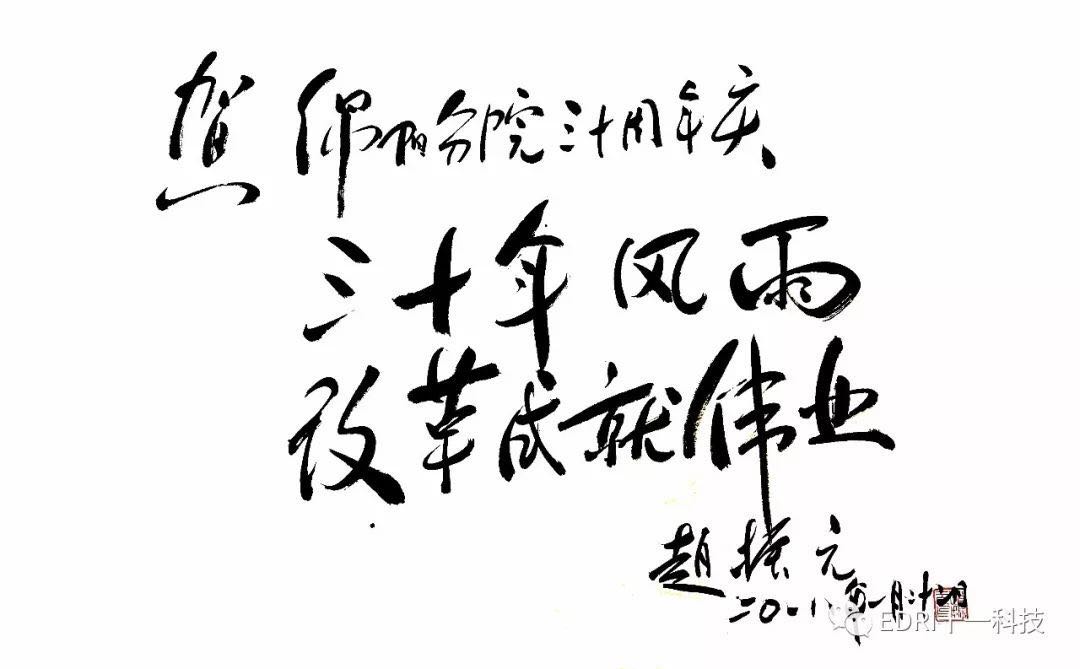 贺 绵阳分院三十周年庆
三十年风雨
改革成就伟业
赵振元
二〇一八年一月廿
EDRI十一科技